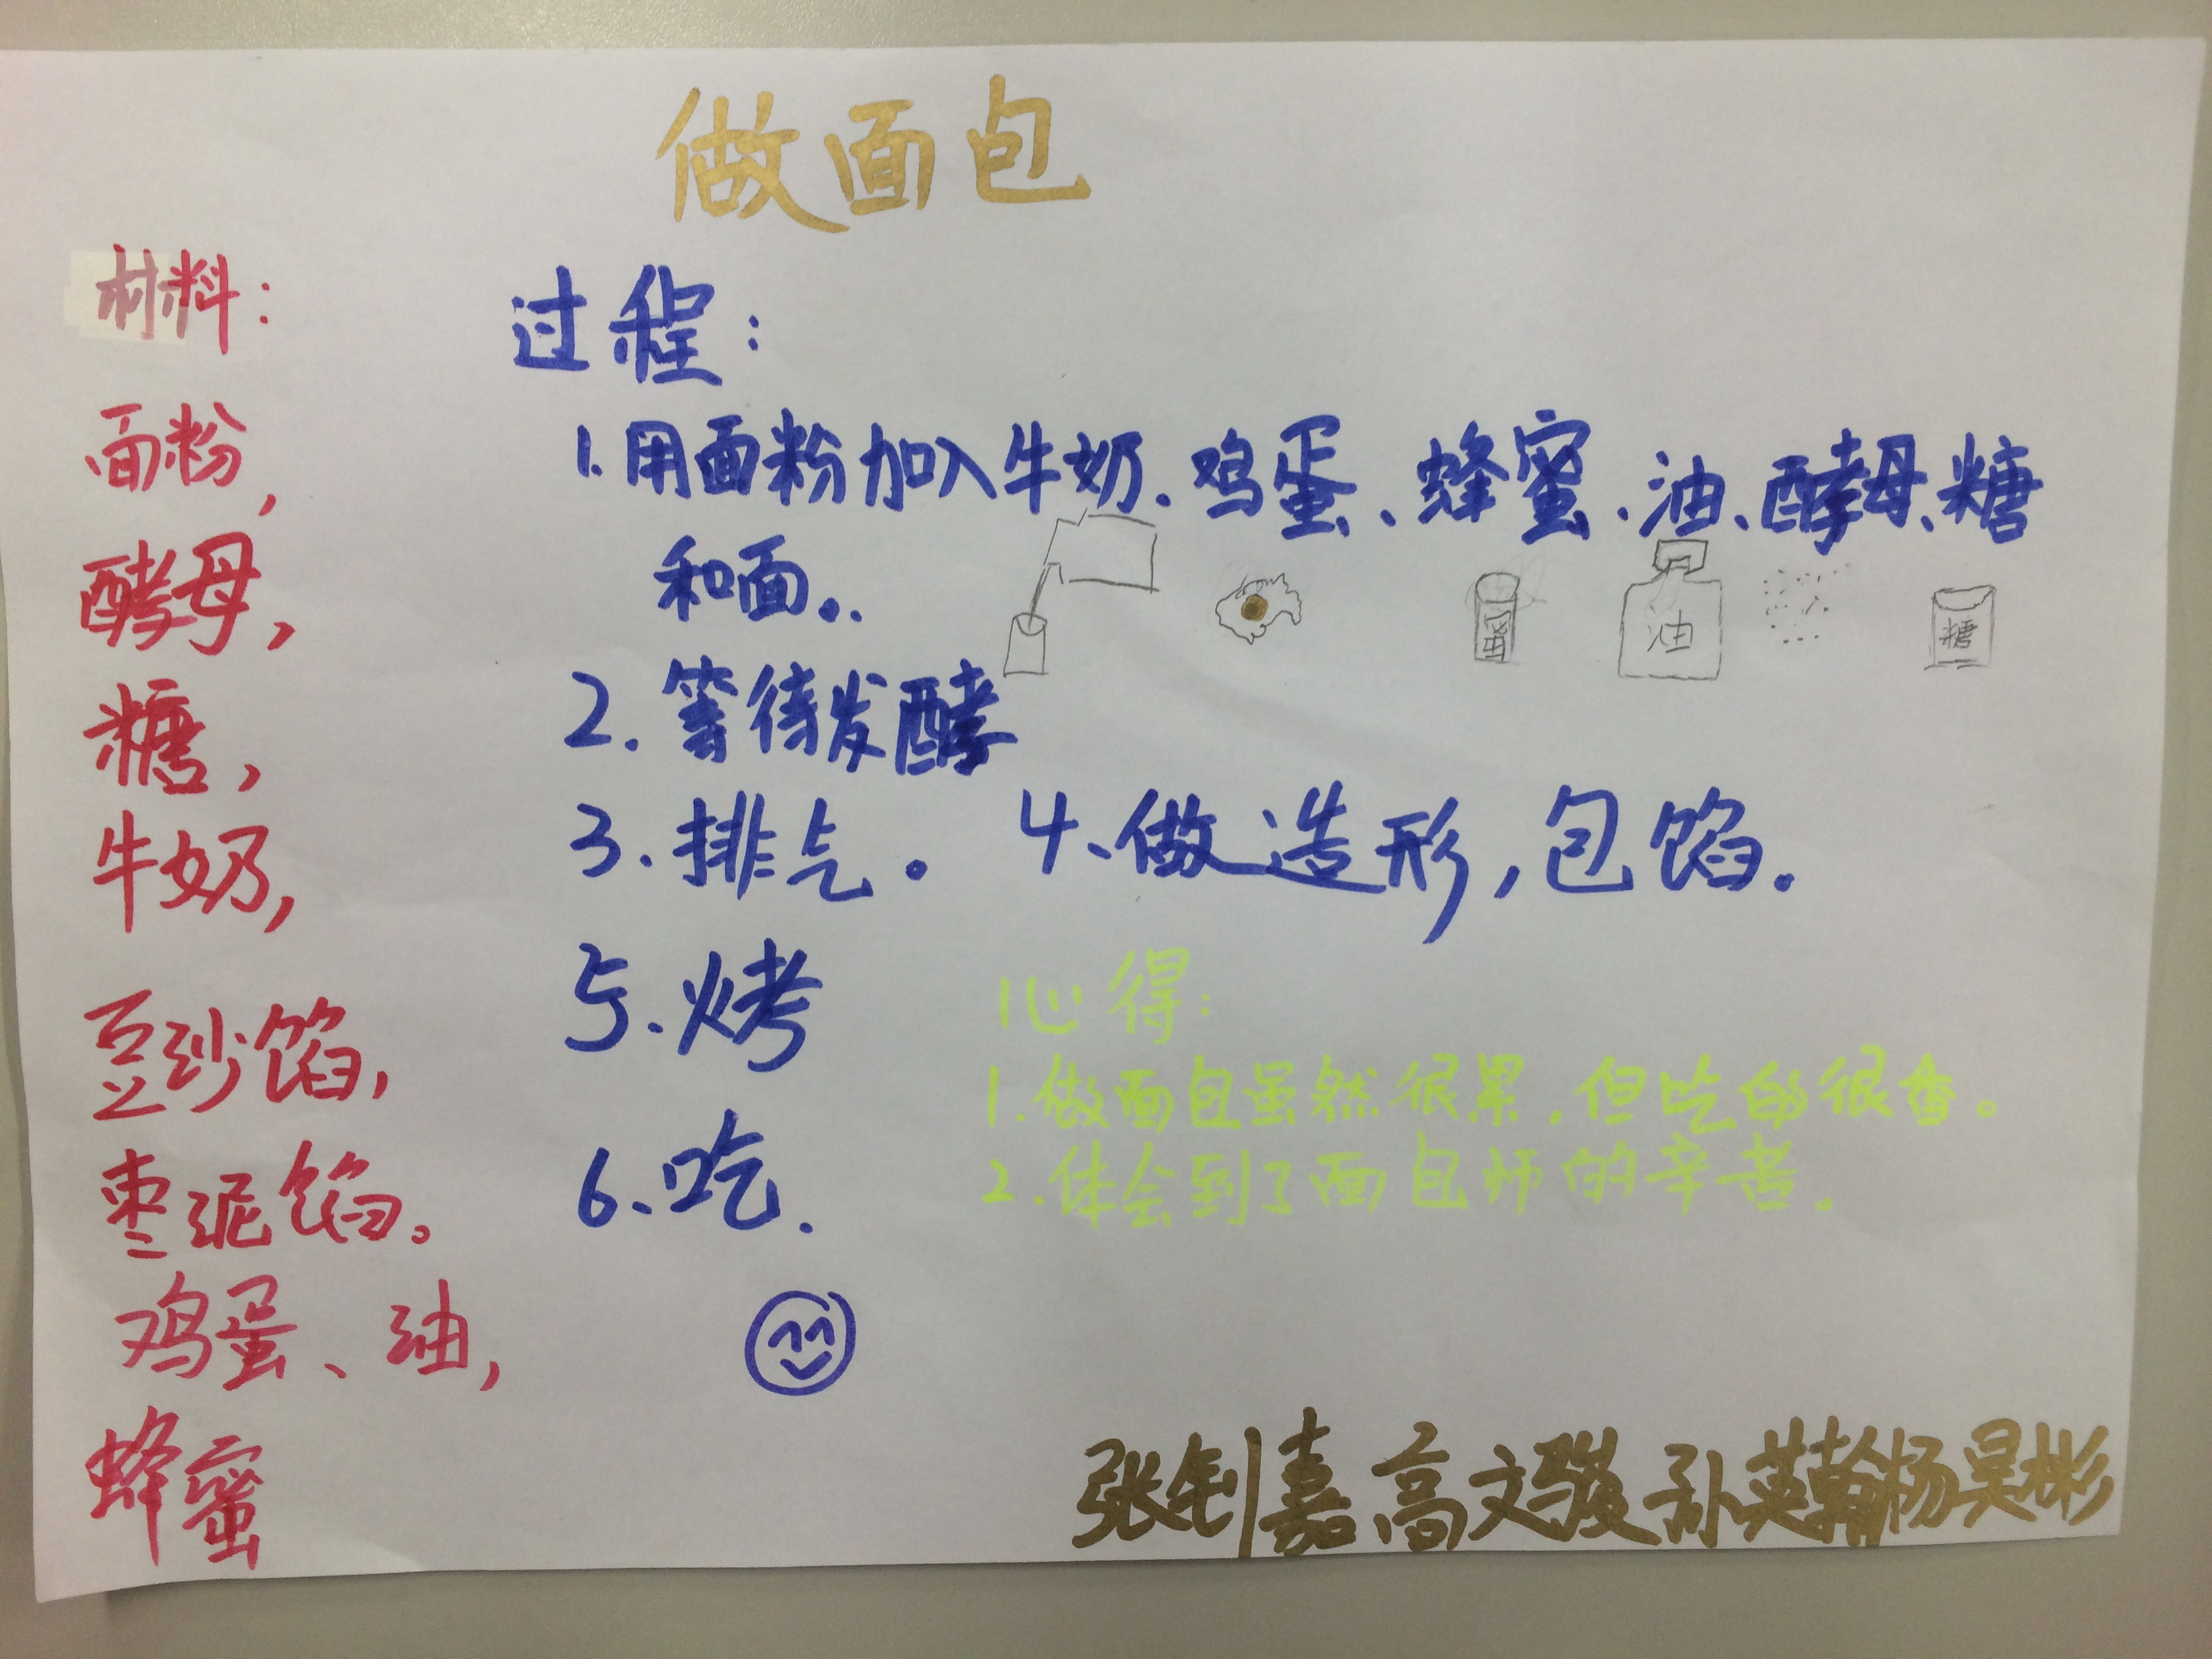 做面包
材料:
面粉,
酵母,
糖,
牛奶,
豆沙馅,
枣泥馅。
鸡蛋、油,
蜂蜜
过程:
1.用面粉加入牛奶、鸡蛋、蜂蜜、油、酵母、糖
和面。.
蜜
油
糖
2.等待发酵
3.排气。 4、做造形,包馅.
5.烤
6、吃.
心得:
1.做面包虽然很累,但吃的很香。
2.体会到了面包师的辛苦.
张钊嘉 高文骏 孙英翰 杨昊彬